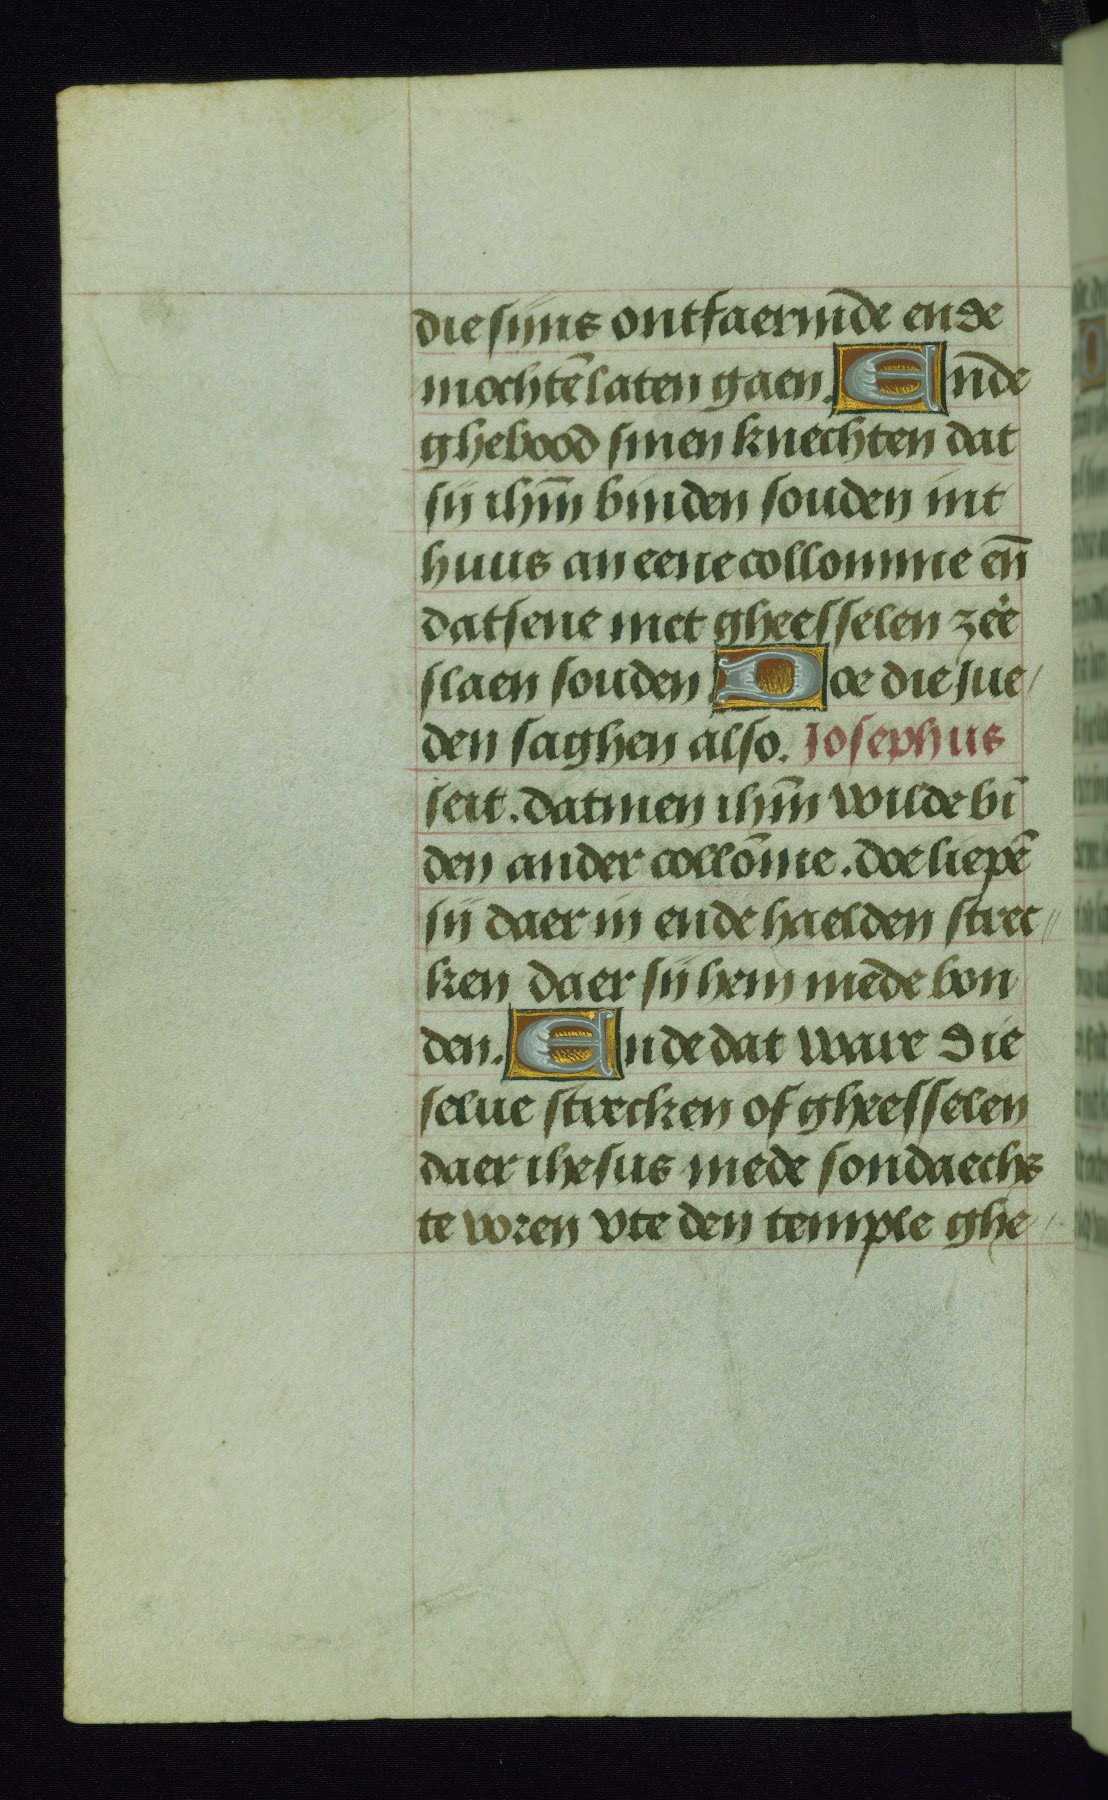 die sijns ontfaermde ende
mochtē laten gaen. Ende
ghebood sinen knechten dat
sij ihm̄ binden souden int
huus an eene collomme en̄
datsene met gheesselen zeē
slaen souden Doe die jue/
den saghen also. Josephus
seit. datmen ihm̄ wilde bī
den ander collōme. doe liepē
sij daer in ende haelden strec//
ken daer sij hem mede bon
den. Ende dat ware die
selue strecken of gheesselen
daer ihesus mede sondaechs
te voren vte den temple ghe//